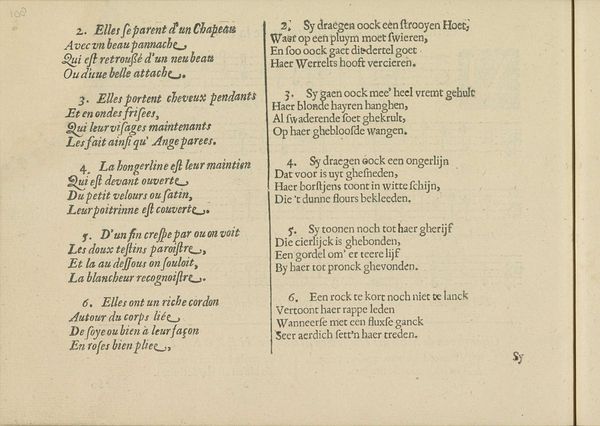 100
2. Elles ſe parent d'un Chapeau
Avec vn beau pannache,
Qui eſt retrouſſé d'un neu beau
Ou d'une belle attache.
3. Elles portent cheveux pendants
Et en ondes friſees,
Qui leur viſages maintenants
Les fait ainſi qu' Ange parees.
4. La hongerline eſt leur maintien
Qui eſt devant ouverte,
Du petit velours ou ſatin,
Leur poitrinne eſt couverte.
5. D'un fin creſpe par ou on voit
Les doux teſtins paroiſtre,
Et la au deſſous on ſouloit,
La blancheur recognoiſtre.
6. Elles ont un riche cordon
Autour du corps liée
De ſoye ou bien à leur façon
En roſes bien pliee,
2. Sy draegen oock een ſtrooyen Hoet,
Waer op een pluym moet ſwieren,
En ſoo oock gaet dit dertel goet
Haer Werrelts hooft vercieren.
3. Sy gaen oock mee' heel vremt gehult
Haer blonde hayren hanghen,
Al ſwaderende ſoet ghekrult,
Op haer ghebloosde wangen.
4. Sy draegen oock een ongerlijn
Dat voor is uyt gheſneden,
Haer borſtjens toont in witte ſchijn,
Die 't dunne flours bekleeden.
5. Sy toonen noch tot haer gherijf
Die cierlijck is ghebonden,
Een gordel om' er teere lijf
By haer tot pronck ghevonden.
6. Een rock te kort noch niet te lanck
Vertoont haer rappe leden
Wanneerſe met een fluxſe ganck
Seer aerdich ſett'n haer treden.
Sy